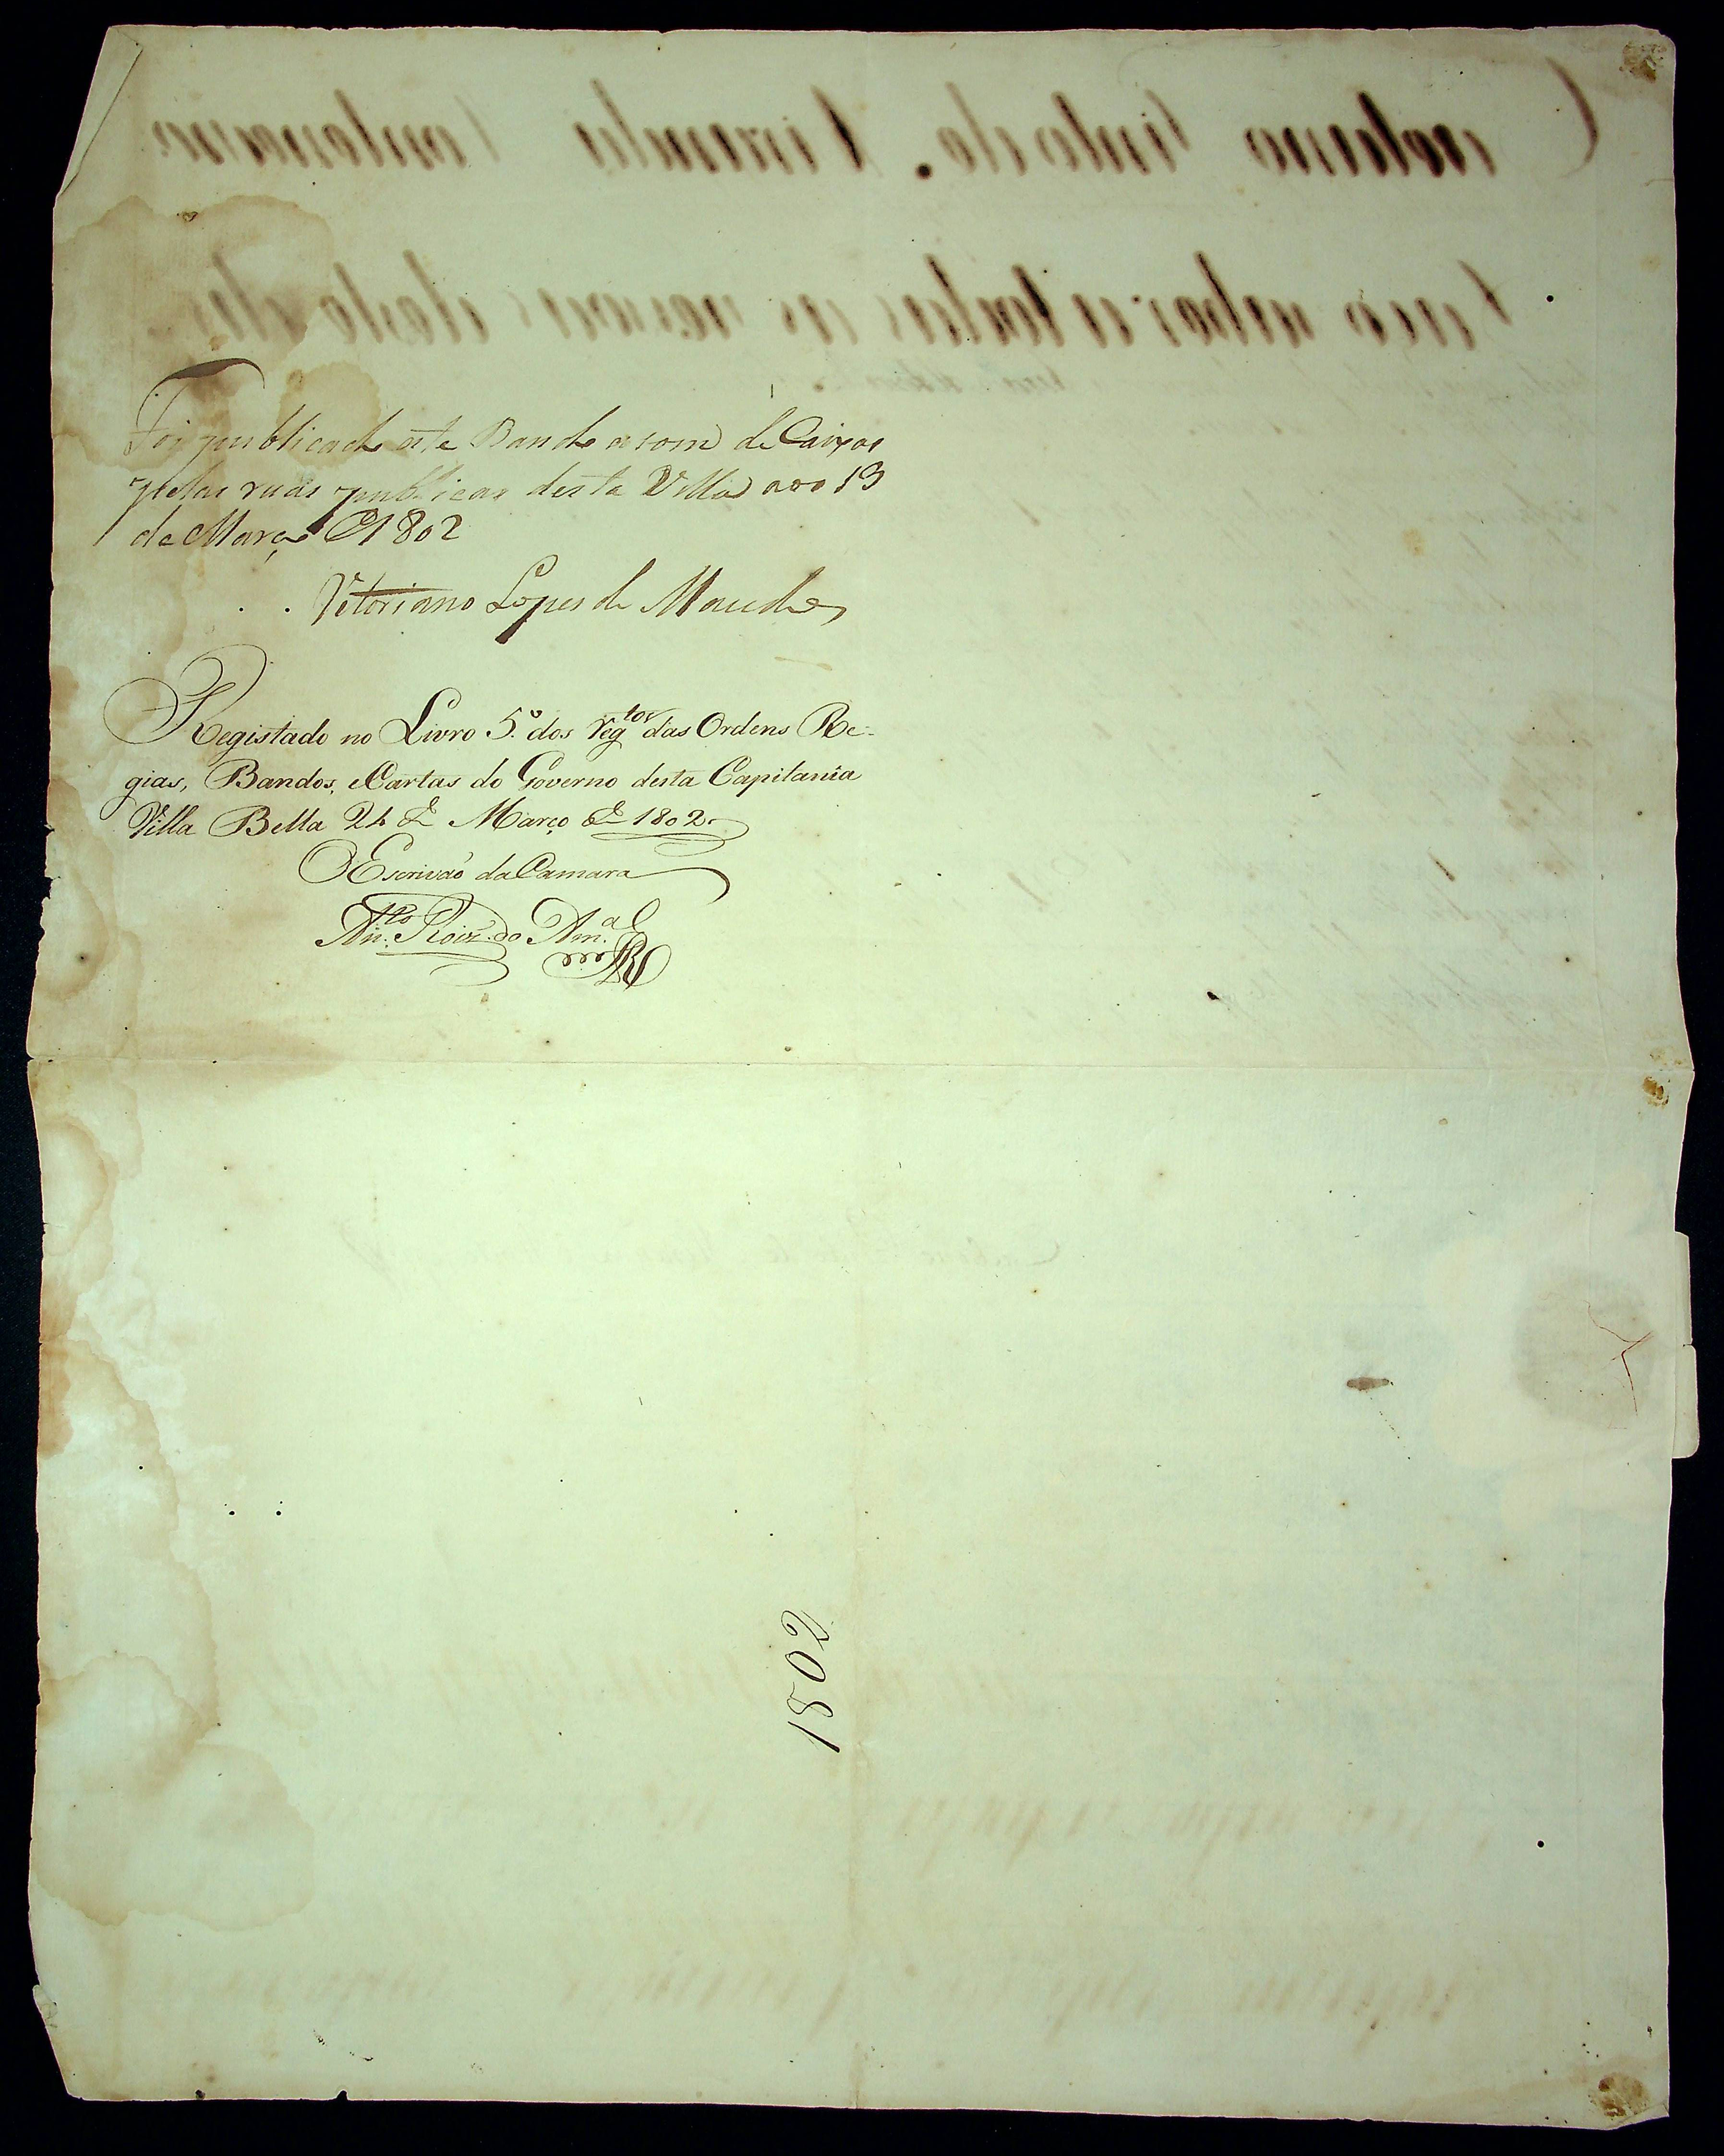 Foi publicado este Bando a som de Caixas
pelas ruas publicas desta Villa aos 13
de Março d 1802
Vitoriano Lopes de Macedo
Registado no Livro 5.º dos reg.tos das Ordens Re-
gias, Bandos, e Cartas do Governo desta Capitanîa
Villa Bella 24 de Março de 1802.
O Escrivaõ da Camara
An.to Roiz do Am.al
1802